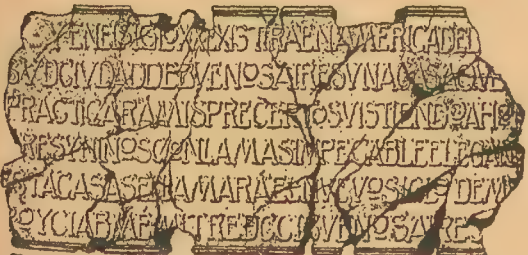 EN EL SIGLO XX EXISTIRA EN AMERICA DEL
SVD CIVDAD DE BVENOS AIRES VNA CASA QVE
PRACTICARA MIS PRECEPTOS VISTIENDO A HOM
RES Y NINOS CON LA MAS IMPECABLE ELEGAN
ESTA CASA SE LLAMARA EL NVEVO SIGLO DE M
ROY CIA B MÉ MITRE BVENOS AIRES